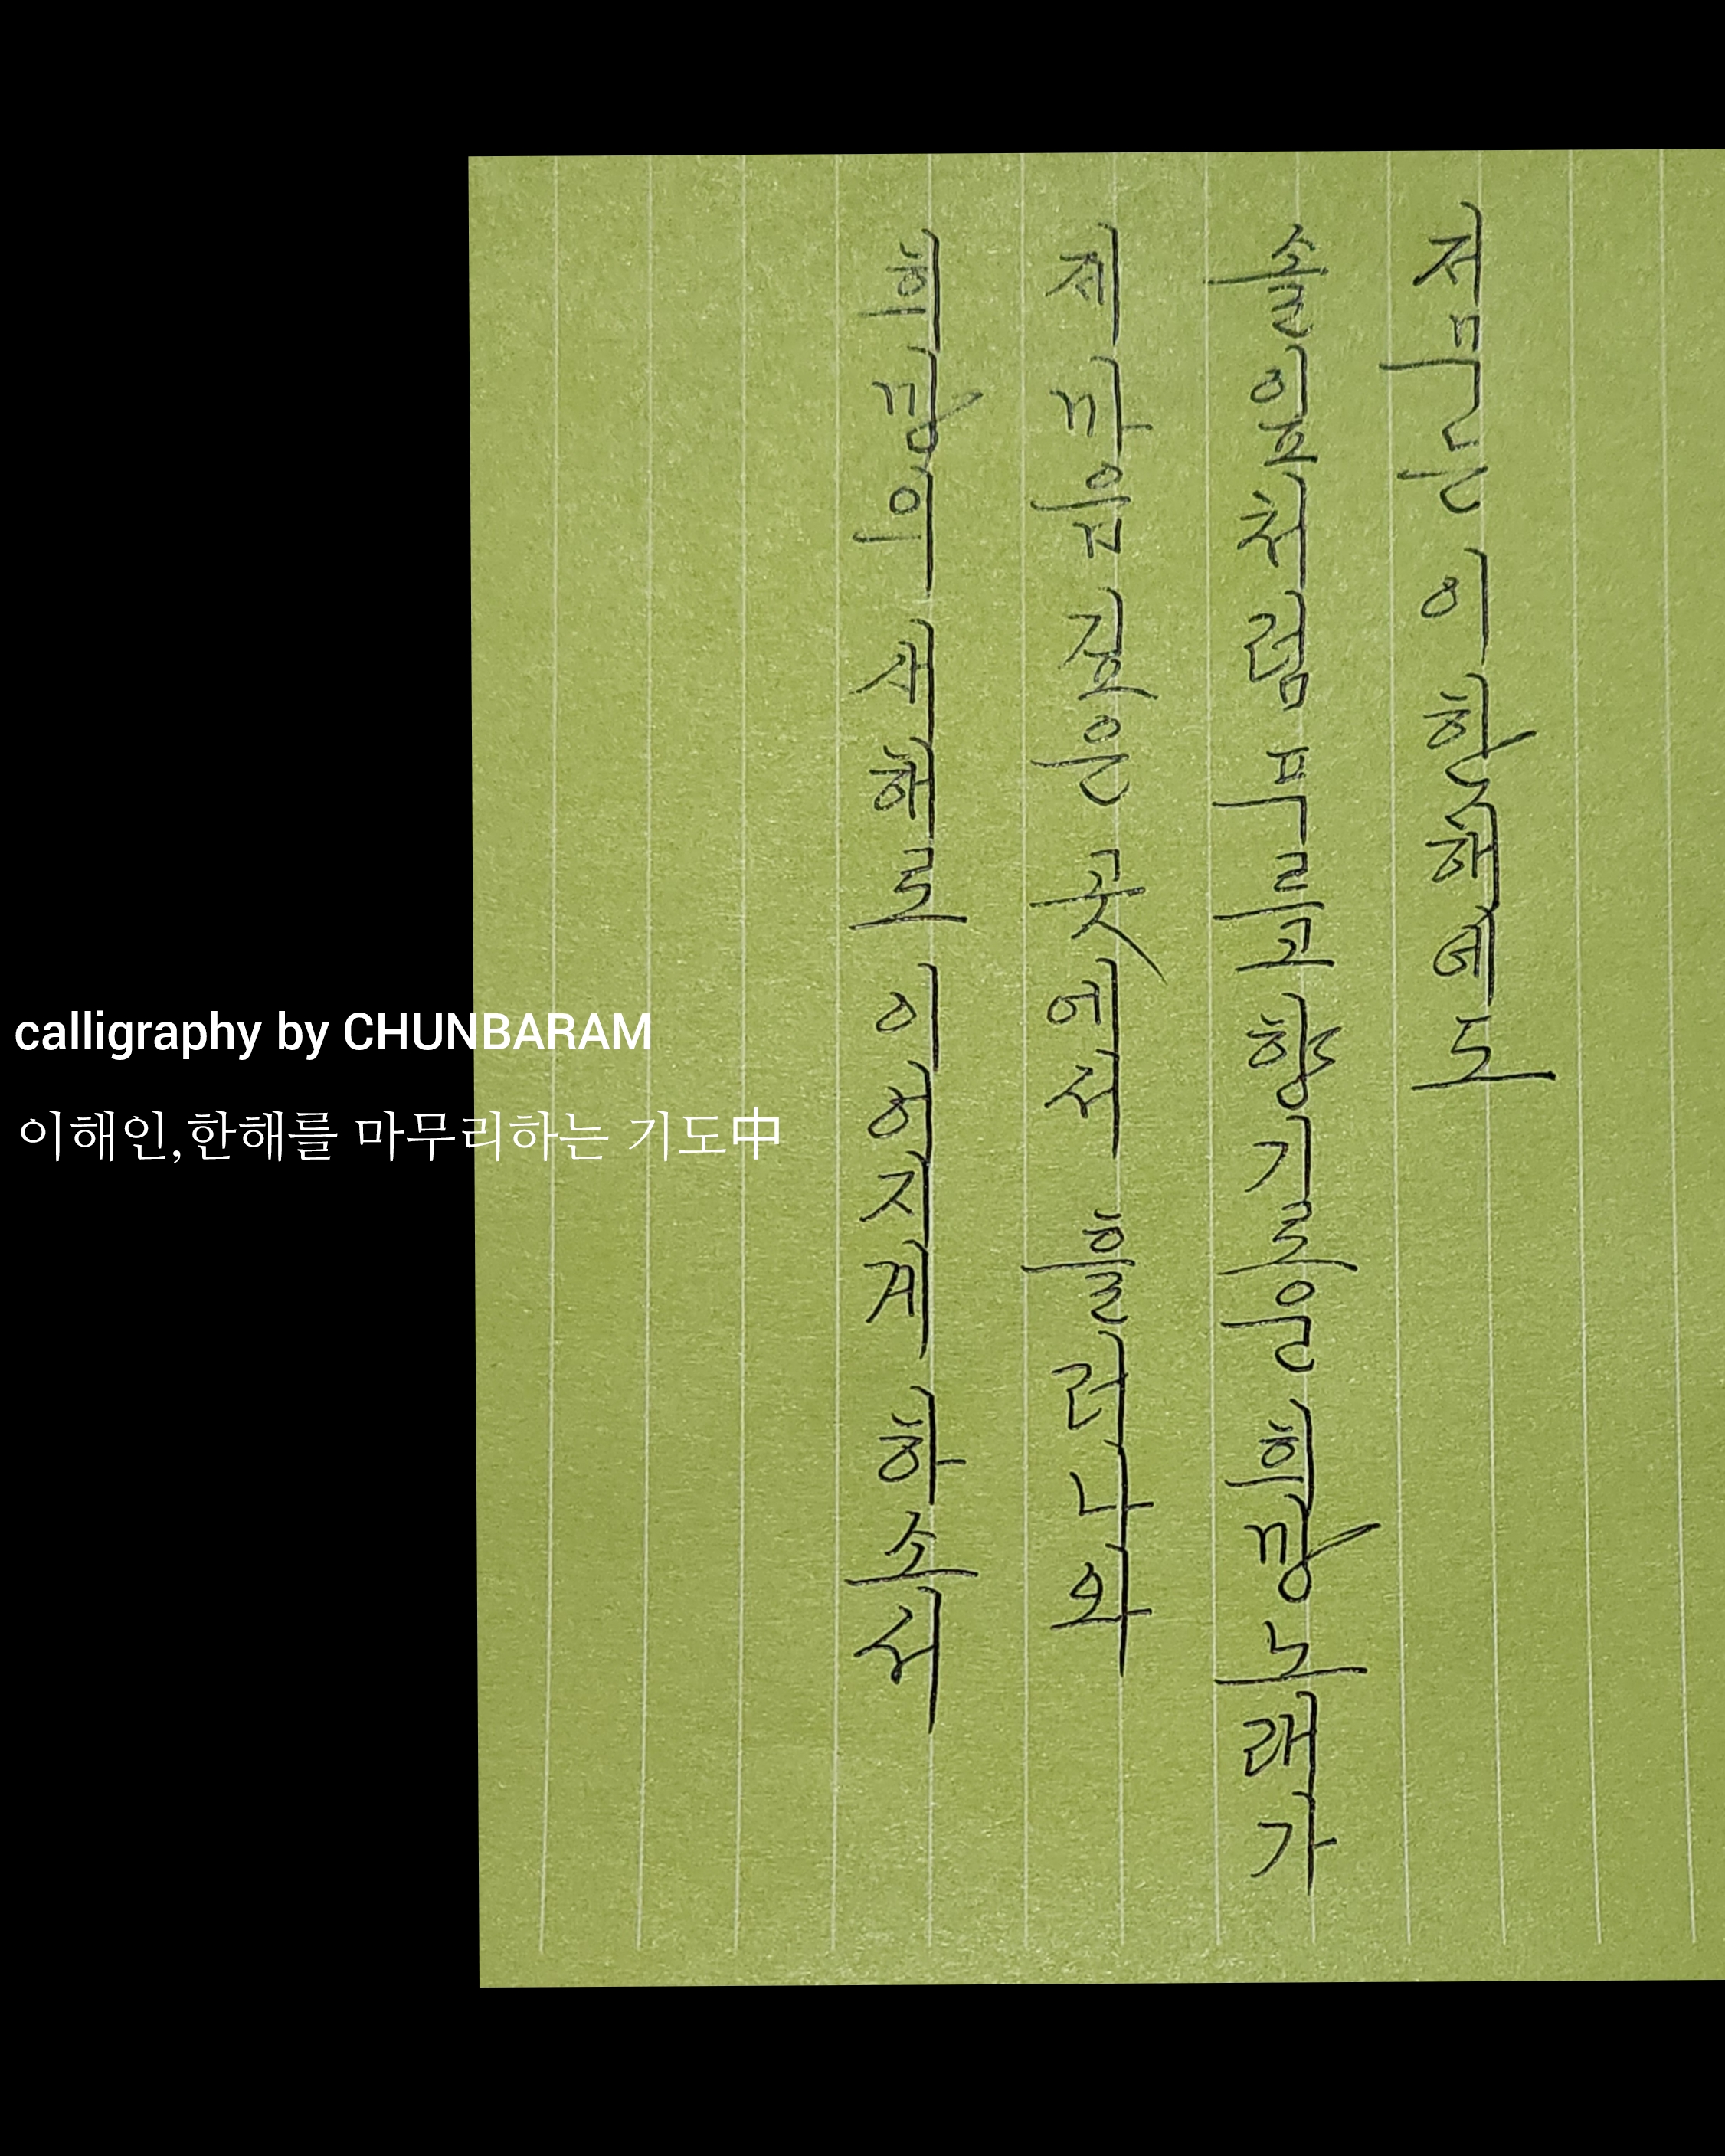 저무는 이 한해에도
솔잎처럼 푸르고 향기로운 희망 노래가
제 마음 깊은 곳에서 흘러나와
희망의 새해로 이어지게 하소서
calligraphy by CHUNBARAM
이해인,한해를 마무리하는 기도中